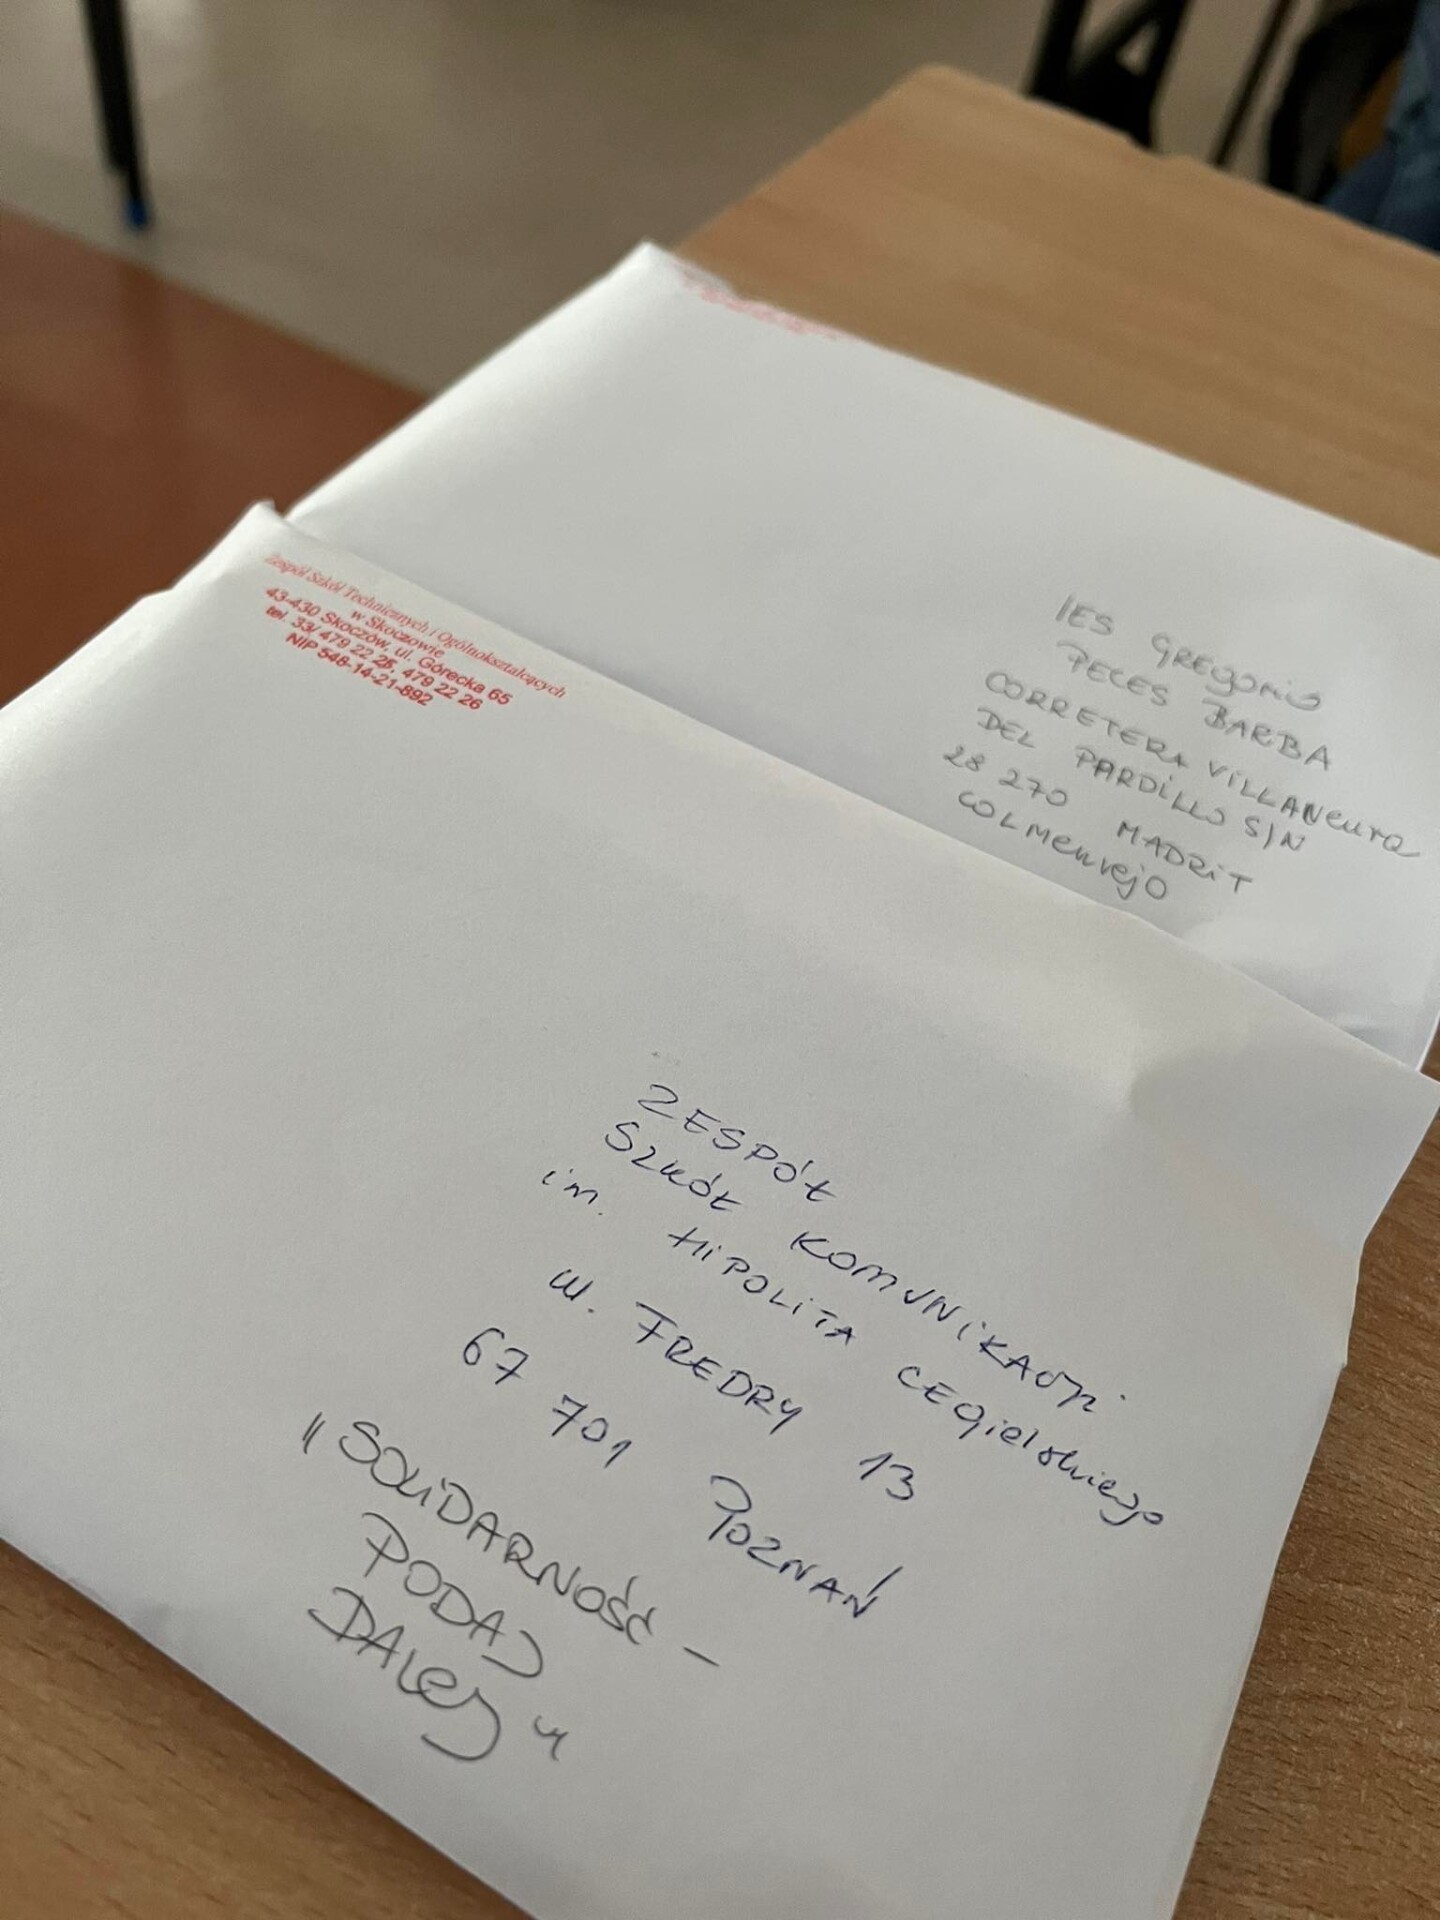 Zespół Szkół Technicznych i Ogólnokształcących
w Skoczowie
43-430 Skoczów, ul. Górecka 65
tel. 33/ 479 22 25, 479 22 26
NIP 548-14-21-892
IES GREGORIO
PECES BARBA
CORRETERA VILLANEURA
DEL PARDILLO S/N
28 270 MADRIT
COLMENVEJO
ZESPÓŁ
SZKÓŁ KOMUNIKACJI
im. HIPOLITA CEGIELSKIEGO
ul. FREDRY 13
67 701 POZNAŃ
"SOLIDARNOŚĆ –
PODAJ
DALEJ"